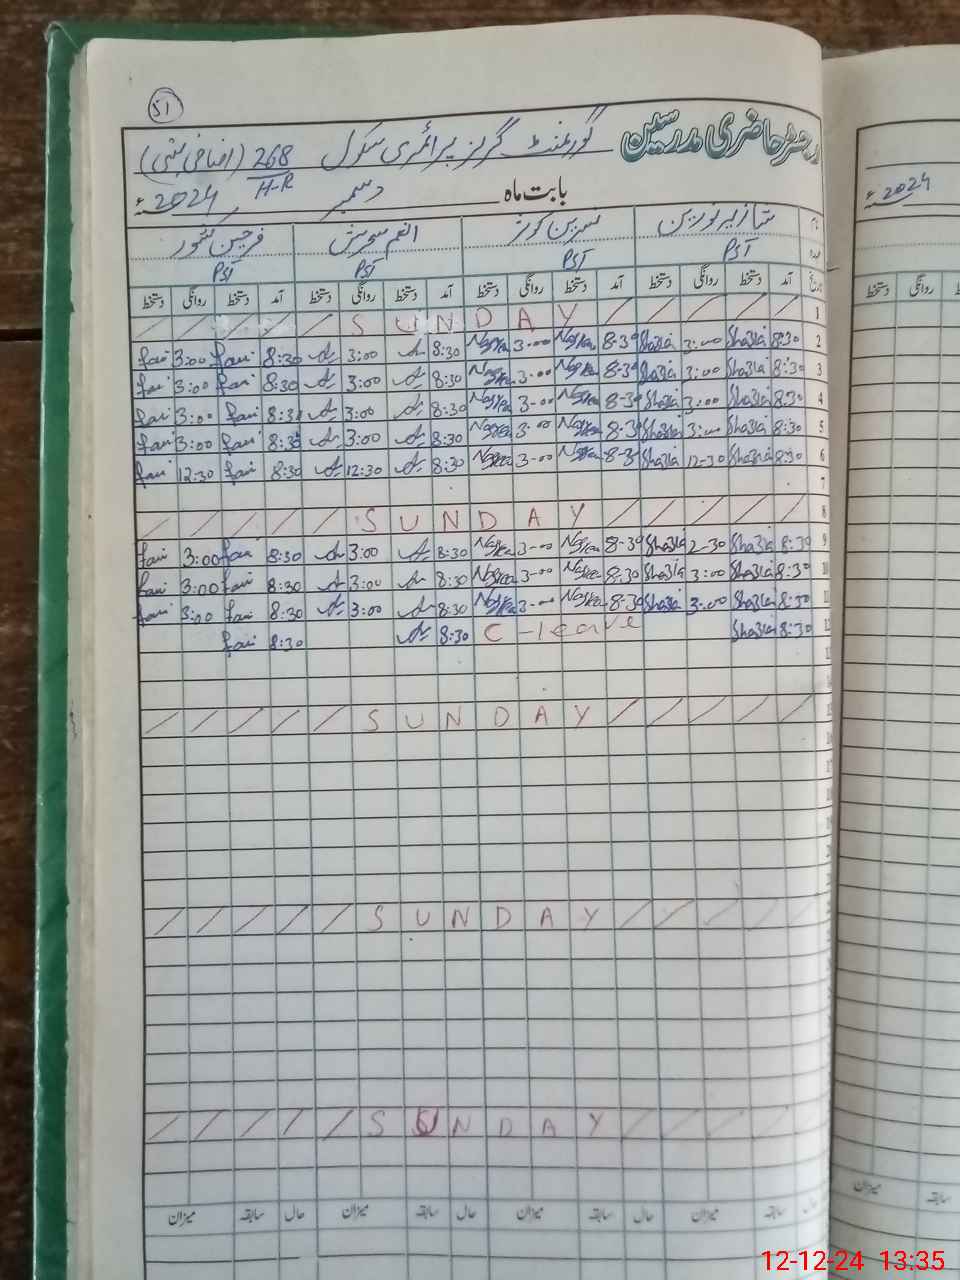 51
رجسٹر حاضری مدرسین گورنمنٹ گرلز پرائمری سکول 268/H-R (اضافی بستی)
بابت ماہ دسمبر 2024ء
نام شازیہ نورین نسرین کوثر انعم سحرش فرحین کشور
عہدہ PST PST PST PST
تاریخ آمد دستخط روانگی دستخط آمد دستخط روانگی دستخط آمد دستخط روانگی دستخط آمد دستخط روانگی دستخط
1 S U N D A Y
fari 3:00 fari 8:30 3:00 8:30 Nasreen 3-00 Nasreen 8-30 Shazia 3:00 Shazia 8:30 2
fari 3:00 fari 8:30 3:00 8:30 Nasreen 3-00 Nasreen 8-30 Shazia 3:00 Shazia 8:30 3
fari 3:00 fari 8:30 3:00 8:30 Nasreen 3-00 Nasreen 8-30 Shazia 3:00 Shazia 8:30 4
fari 3:00 fari 8:30 3:00 8:30 Nasreen 3-00 Nasreen 8-30 Shazia 3:00 Shazia 8:30 5
fari 12:30 fari 8:30 12:30 8:30 Nasreen 3-00 Nasreen 8-30 Shazia 12-30 Shazia 8:30 6
7
8 S U N D A Y
fari 3:00 fari 8:30 3:00 8:30 Nasreen 3-00 Nasreen 8-30 Shazia 2-30 Shazia 8:30 9
fari 3:00 fari 8:30 3:00 8:30 Nasreen 3-00 Nasreen 8:30 Shazia 3:00 Shazia 8:30 10
fari 3:00 fari 8:30 3:00 8:30 Nasreen 3-00 Nasreen 8-30 Shazia 3:00 Shazia 8:30 11
fari 8:30 8:30 C-leave Shazia 8:30 12
13
S U N D A Y 15
S U N D A Y
S U N D A Y
حال سابقہ میزان حال سابقہ میزان حال سابقہ میزان حال سابقہ میزان
2024ء
دستخط روانگی
میزان سابقہ
12-12-24 13:35